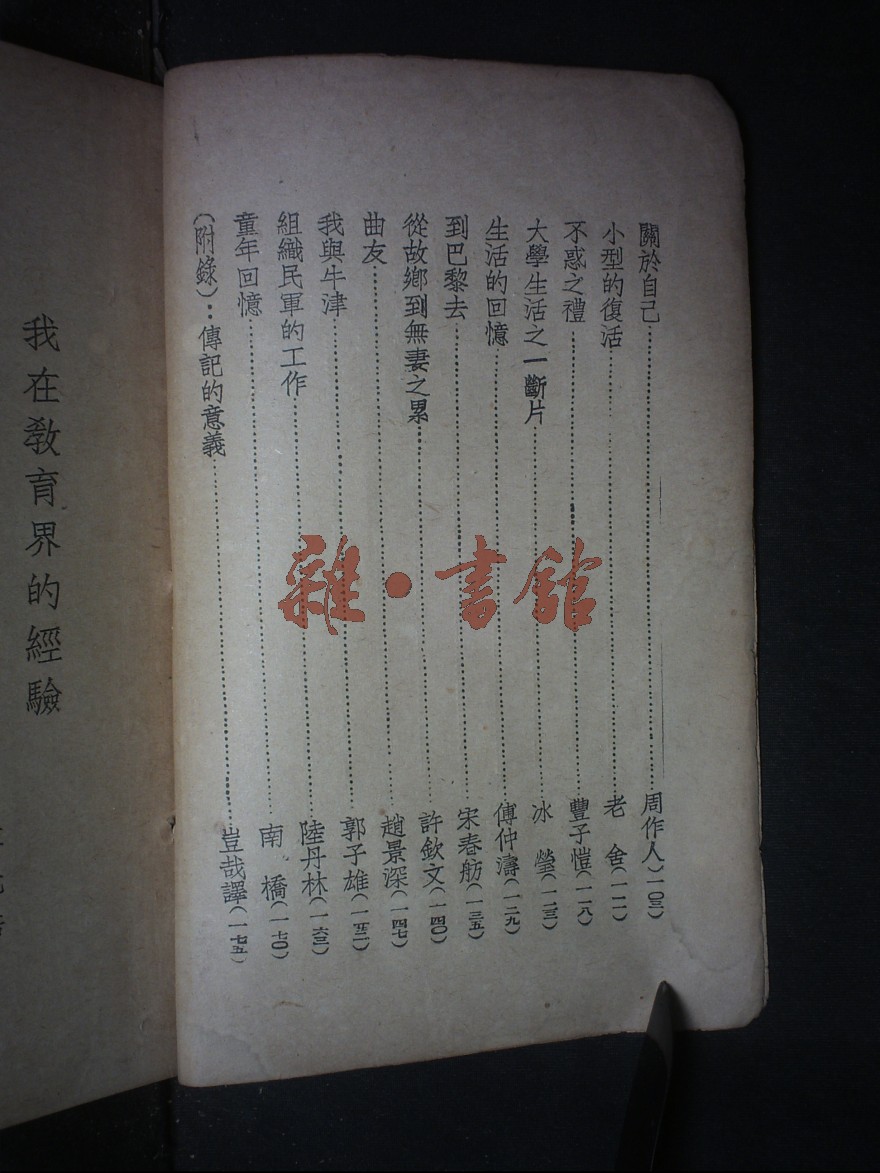 關於自己……周作人(一〇三)
小型的復活……老舍(一一二)
不惑之禮……豐子愷(一一八)
大學生活之一斷片……冰瑩(一二三)
生活的回憶……傅仲濤(一二九)
到巴黎去……宋春舫(一三五)
從故鄉到無妻之累……許欽文(一四〇)
曲友……趙景深(一四七)
我與牛津……郭子雄(一五二)
組織民軍的工作……陸丹林(一六三)
童年回憶……南橋(一七〇)
(附錄):傳記的意義……豈哉譯(一七五)
雜·書館
我在教育界的經驗